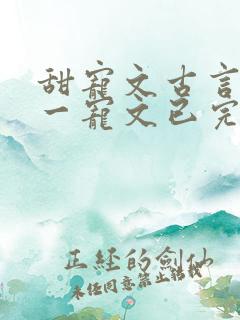 甜寵文古言
一寵文已完
正經的劍仙
未经同意禁止转载